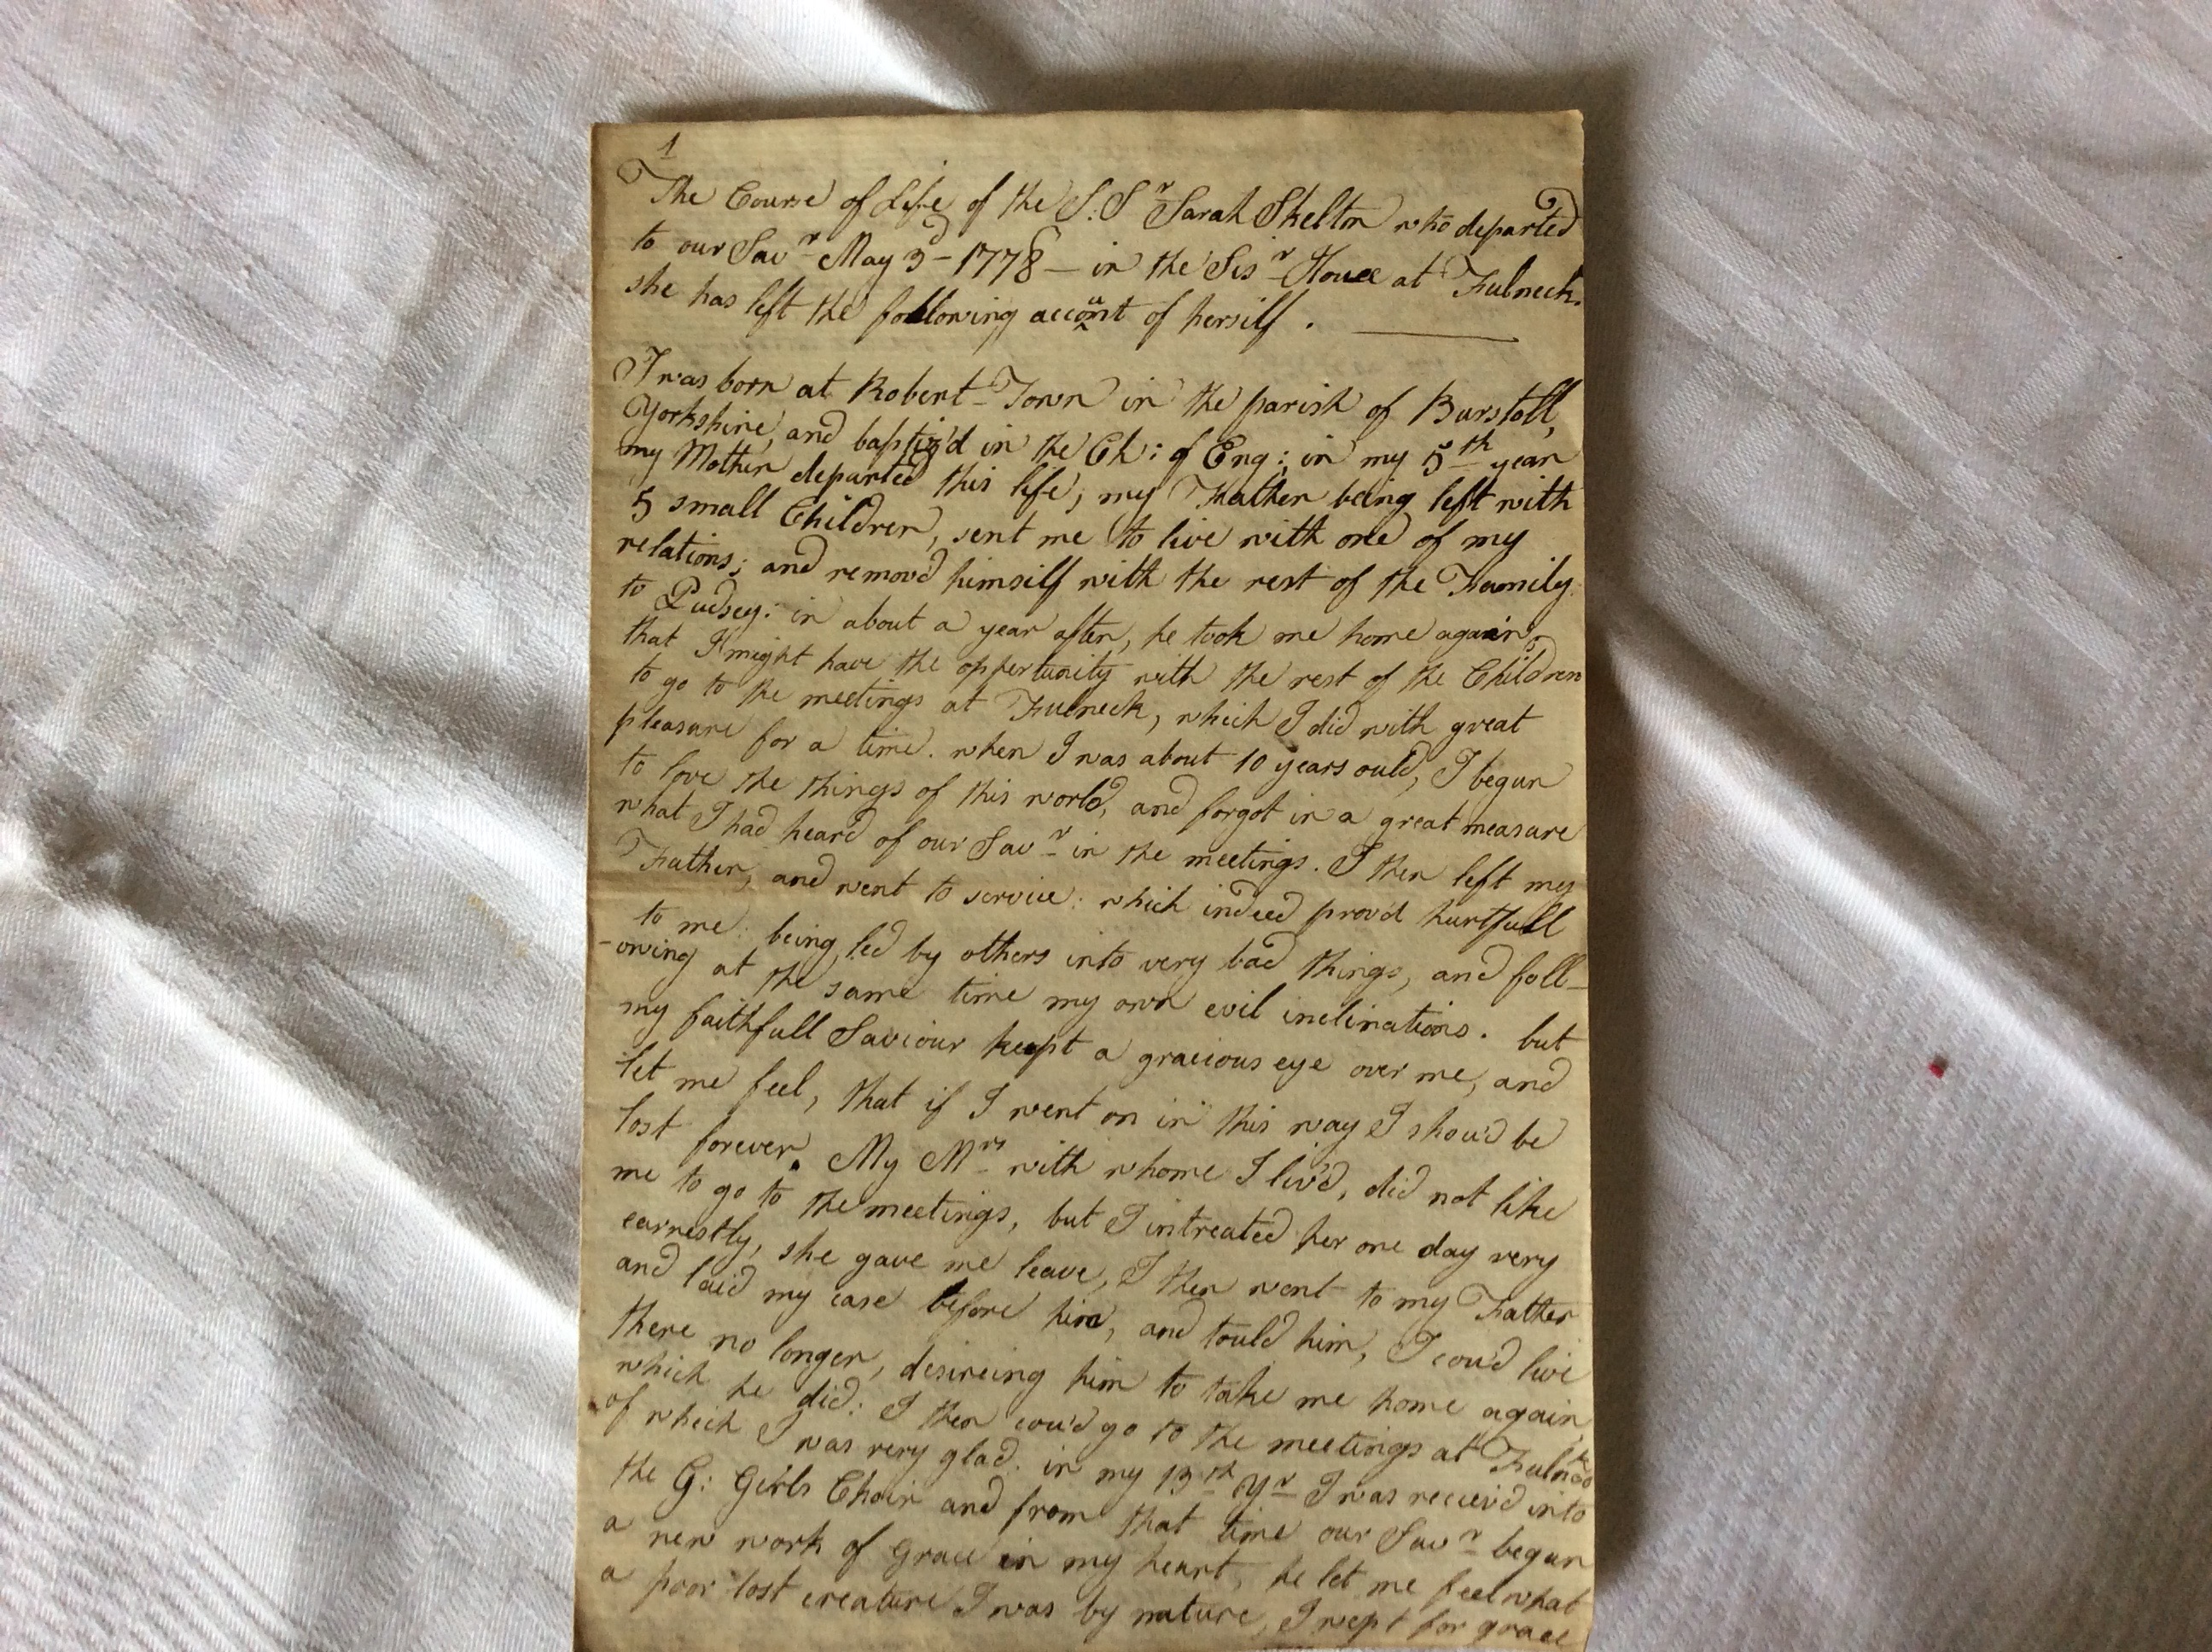 1
The Course of Life of the S: Sr Sarah Shelton who departed
to our Savr May 3d 1778 — in the Sisr House at Fulneck.
she has left the following account of herself. —
I was born at Robert-Town in the parish of Burstall,
Yorkshire, and baptiz'd in the Ch: of Eng; in my 5th year
my Mother departed this life; my Father being left with
5 small Children, sent me to live with one of my
relations; and remov'd himself with the rest of the Family
to Pudsey: in about a year after, he took me home again,
that I might have the oppertunity with the rest of the Children
to go to the meetings at Fulneck, which I did with great
pleasure for a time. when I was about 10 years ould, I begun
to love the things of this world, and forgot in a great measure
what I had heard of our Savr in the meetings. I then left my
Father, and went to service: which indeed prov'd hurtfull
to me: being led by others into very bad things, and foll-
-owing at the same time my own evil inclinations. but
my faithfull Saviour keept a gracious eye over me, and
let me feel, that if I went on in this way I shou'd be
lost forever. My Mrs with whome I liv'd, did not like
me to go to the meetings, but I intreated her one day very
earnestly, she gave me leave, I then went to my Father
and laid my case before him, and tould him, I cou'd live
there no longer, desireing him to take me home again,
which he did: I then cou'd go to the meetings at Fulneck
of which I was very glad. in my 13th Yr I was reciev'd into
the G: Girls Choir and from that time our Savr begun
a new work of Grace in my heart, he let me feel what
a poor lost creature I was by nature, I wept for grace